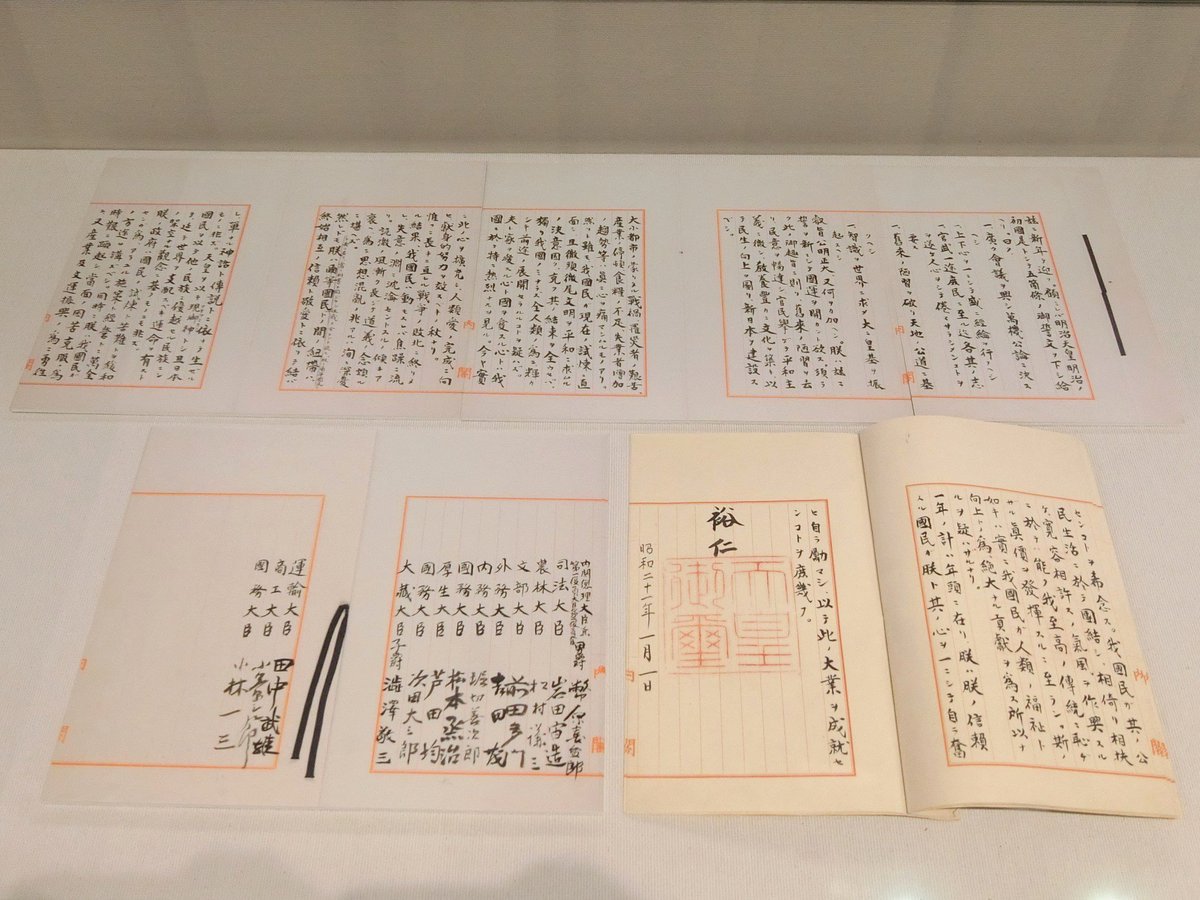 茲ニ新年ヲ迎フ。顧ミレバ明治天皇明治ノ
初國是トシテ五箇條ノ御誓文ヲ下シ給
ヘリ。曰ク、
一、廣ク會議ヲ興シ萬機公論ニ決ス
ヘシ
一、上下心ヲ一ニシテ盛ニ經綸ヲ行フヘシ
一、官武一途庶民ニ至ル迄各其ノ志
ヲ遂ケ人心ヲシテ倦マサラシメンコトヲ
要ス
一、舊來ノ陋習ヲ破リ天地ノ公道ニ基
クヘシ
一、智識ヲ世界ニ求メ大ニ皇基ヲ振
起スヘシ
叡旨公明正大、又何ヲカ加ヘン。朕ハ茲ニ
誓ヲ新ニシテ國運ヲ開カント欲ス。須ラク
此ノ御趣旨ニ則リ、舊來ノ陋習ヲ去
リ、民意ヲ暢達シ、官民擧ゲテ平和主
義ニ徹シ、教養豐カニ文化ヲ築キ、以
テ民生ノ向上ヲ圖リ、新日本ヲ建設ス
ベシ。
大小都市ノ蒙リタル戰禍、罹災者ノ艱苦、
産業ノ停頓、食糧ノ不足、失業者増加
ノ趨勢等ハ眞ニ心ヲ痛マシムルモノアリ。
然リト雖モ、我國民ガ現在ノ試煉ニ直
面シ、且徹頭徹尾文明ヲ平和ニ求ムル
ノ決意固ク、克ク其ノ結束ヲ全ウセバ、
獨リ我國ノミナラズ全人類ノ爲ニ、輝カ
シキ前途ノ展開セラルルコトヲ疑ハズ。
夫レ家ヲ愛スル心ト國ヲ愛スル心トハ我
國ニ於テ特ニ熱烈ナルヲ見ル。今ヤ實
ニ此ノ心ヲ擴充シ、人類愛ノ完成ニ向
ヒ、獻身的努力ヲ效スベキノ秋ナリ。
惟フニ長キニ亘レル戰爭ノ敗北ニ終リタ
ル結果、我國民ハ動モスレバ焦躁ニ流
レ、失意ノ淵ニ沈淪セントスルノ傾キア
リ。詭激ノ風漸ク長ジテ道義ノ念頗ル
衰ヘ、爲ニ思想混亂ノ兆アルハ洵ニ深憂
ニ堪ヘズ。
然レドモ朕ハ爾等國民ト
間ノ紐帶ハ、
終始相互ノ信頼ト敬愛トニ依リテ結バ
レ、單ナル神話ト傳説トニ依リテ生ゼル
モノニ非ズ。天皇ヲ以テ現御神トシ、且日本
國民ヲ以テ他ノ民族ニ優越セル民族ニシ
テ、延テ世界ヲ支配スベキ運命ヲ有スト
ノ架空ナル觀念ニ基クモノニモ非ズ。
朕ノ政府ハ國民ノ試煉ト苦難トヲ緩和
センガ爲、アラユル施策ト經營トニ萬全
ノ方途ヲ講ズベシ。同時ニ朕ハ我國民ガ
時艱ニ蹶起シ、當面ノ困苦克服ノ爲ニ、
又産業及文運振興ノ爲ニ勇
センコトヲ希念ス。我國民ガ其ノ公
民生活ニ於テ團結シ、相倚リ相扶
ケ、寛容相許スノ氣風ヲ作興スル
ニ於テハ、能ク我至高ノ傳統ニ恥ヂ
ザル眞價ヲ發揮スルニ至ラン。斯ノ
如キハ實ニ我國民ガ人類ノ福祉ト
向上トノ爲、絶大ナル貢獻ヲ爲ス所以ナ
ルヲ疑ハザルナリ。
一年ノ計ハ年頭ニ在リ、朕ハ朕ノ信頼
スル國民ガ朕ト其ノ心ヲ一ニシテ、自ラ奮
ヒ、自ラ勵マシ、以テ此ノ大業ヲ成就セ
ンコトヲ庶幾フ。
裕仁
天皇御璽
昭和二十一年一月一日
内閣總理大臣兼
第一復員大臣第二復員大臣 男爵 幣原喜重郎
司法大臣 岩田宙造
農林大臣 松村謙三
文部大臣 前田多門
外務大臣 吉田茂
内務大臣 堀切善次郎
國務大臣 松本烝治
厚生大臣 芦田均
國務大臣 次田大三郎
大藏大臣 子爵 澁澤敬三
運輸大臣 田中武雄
商工大臣 小笠原三九郎
國務大臣 小林一三
内閣